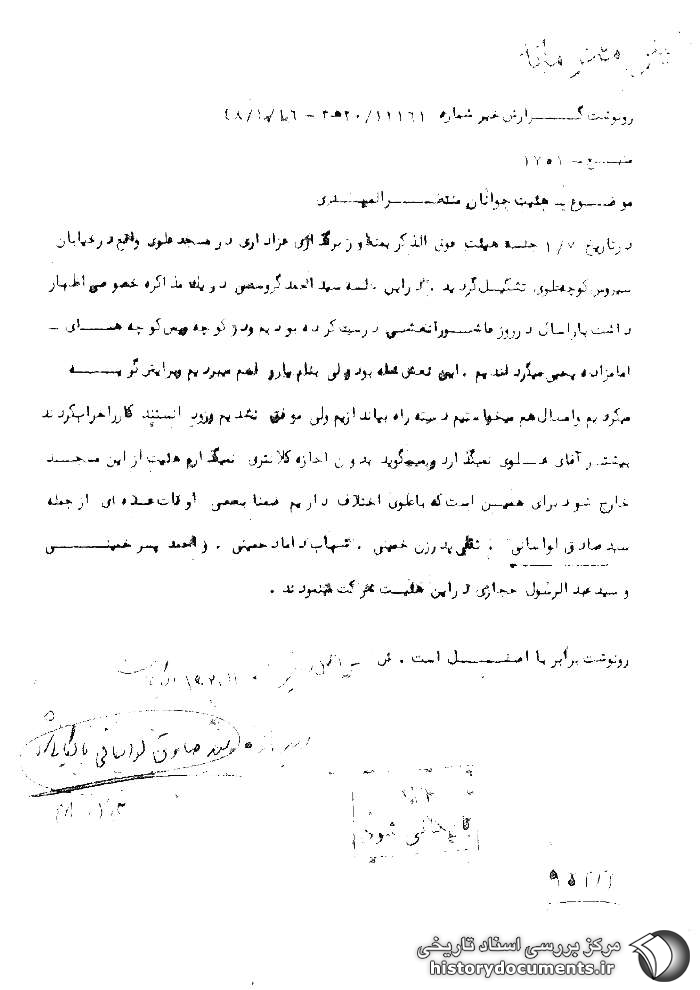 رونوشت گزارش خبر شماره ۱۱۱۶۱/۲۰ه۳ -
منبع - ۱۷۵۱
موضوع - هیئت جوانان منتظرالمهدی
در تاریخ ۱/۷ جلسه هیئت فوق الذکر بمنظور برگذاری عزاداری در مسجد علوی واقع در خیابان
سیروس کوچه علوی تشکیل گردید در این جلسه سید احمد در یک مذاکره خصوصی اظهار
داشت پارسال در روز عاشورا نعشی درست کرده بودیم و در کوچه پس کوچه های -
امامزاده یحیی میگرداندیم . این نعش شله بود ولی بنام یارو اسم میبردیم و برایش گریه
میکردیم و امسال هم میخواستیم دسته راه بیاندازیم ولی موفق نشدیم و زود دانستند کار را خراب کردند
بیشتر آقای علوی نمیگذارد و میگوید بدون اجازه کلانتری نمیگذارم هیئت از این مسجد
خارج شود برای همین است که با علوی اختلاف داریم ضمنا بعضی اوقات عده ای از جمله
سید صادق لواسانی . ثقفی پدر زن خمینی . شهاب داماد خمینی . و احمد پسر خمینی
و سید عبدالرسول حجازی در این هیئت شرکت مینمودند .
رونوشت برابر با اصل است . ش
سید صادق لواسانی بایگانی
بایگانی شود
۹۵۲/۲
مرکز بررسی اسناد تاریخی
historydocuments.ir